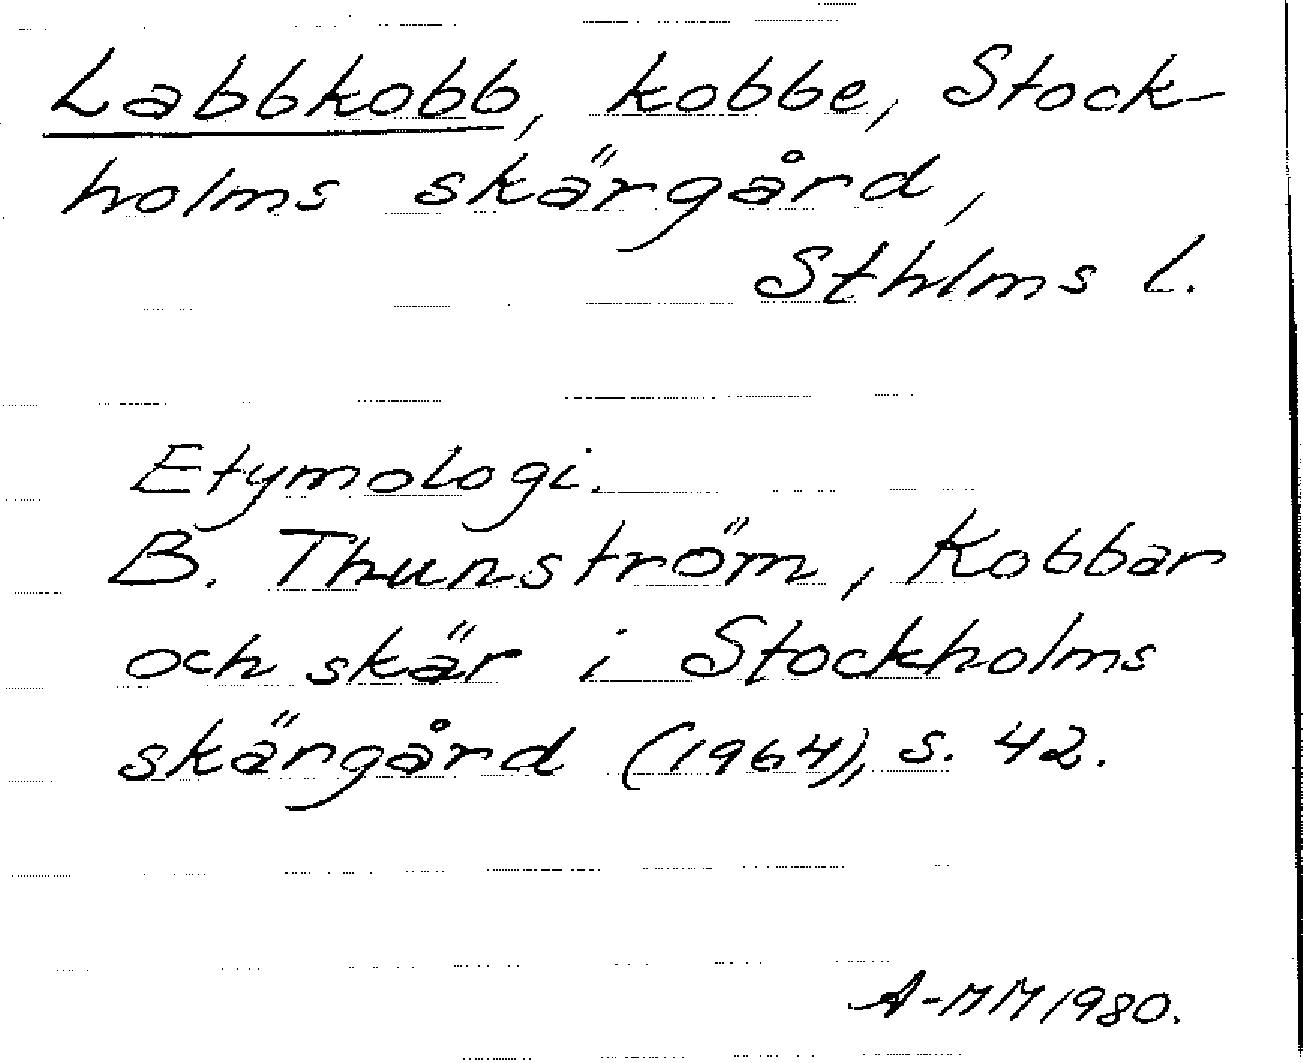 Labbkobb, kobbe, Stock-
holms skärgård,
Sthlms l.
Etymologi.
B. Thunström, Kobbar
och skär i Stockholms
skärgård (1964), s. 42.
A-MM 1980.